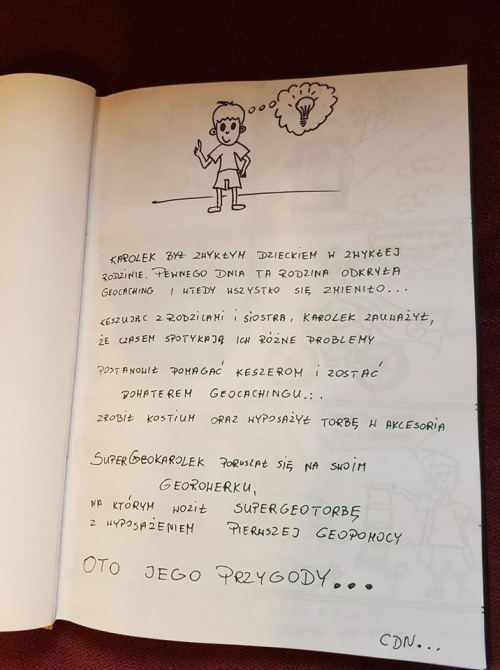 KAROLEK BYŁ ZWYKŁYM DZIECKIEM W ZWYKŁEJ
RODZINIE. PEWNEGO DNIA TA RODZINA ODKRYŁA
GEOCACHING I WTEDY WSZYSTKO SIĘ ZMIENIŁO...
KESZUJĄC Z RODZICAMI i SIOSTRĄ, KAROLEK ZAUWAŻYŁ,
ŻE CZASEM SPOTYKAJĄ ICH RÓŻNE PROBLEMY
POSTANOWIŁ POMAGAĆ KESZEROM i ZOSTAĆ
BOHATEREM GEOCACHINGU...
ZROBIŁ KOSTIUM ORAZ WYPOSAŻYŁ TORBĘ W AKCESORIA
SUPERGEOKAROLEK PORUSZAŁ SIĘ NA SWOIM
GEOROWERKU,
NA KTÓRYM WOZIŁ SUPERGEOTORBĘ
Z WYPOSAŻENIEM PIERWSZEJ GEOPOMOCY
OTO JEGO PRZYGODY...
CDN...